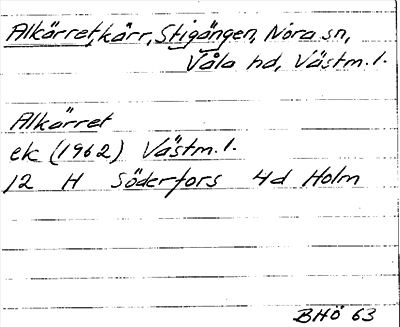 Alkärret, kärr, Stigängen, Nora sn,
Våla hd, Västm. l.
Alkärret
ek (1962) Västm. l.
12 H Söderfors 4d Holm
BHÖ 63